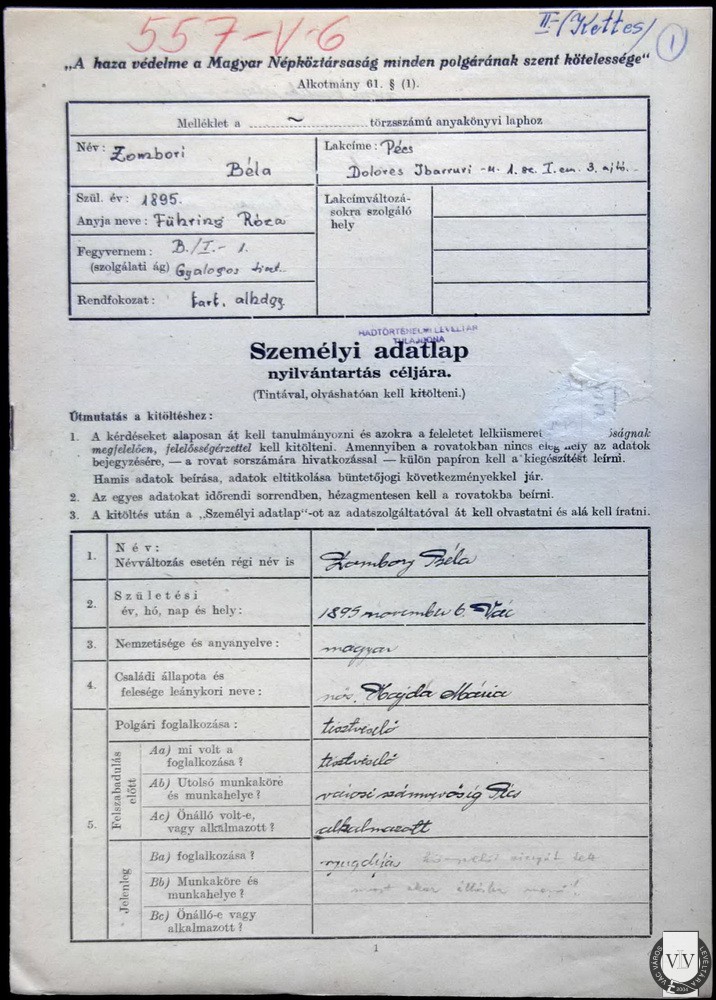 557-V-6
II-(Kettes)
1
„A haza védelme a Magyar Népköztársaság minden polgárának szent kötelessége"
Alkotmány 61. § (1).
Melléklet a ~ törzsszámú anyakönyvi laphoz
Név: Zombori Béla
Lakcíme: Pécs
Dolores Ibarruri -u. 1. sz. I. em. 3. ajtó.
Szül. év: 1895.
Anyja neve: Führing Róza
Lakcímváltozá-
sokra szolgáló
hely
Fegyvernem: B./I.- 1.
(szolgálati ág) Gyalogos tiszt.
Rendfokozat: tart. alhdgy
HADTÖRTÉNELMI LEVÉLTÁR
TULAJDONA
Személyi adatlap
nyilvántartás céljára.
(Tintával, olvashatóan kell kitölteni.)
Útmutatás a kitöltéshez:
1. A kérdéseket alaposan át kell tanulmányozni és azokra a feleletet lelkiismeret óságnak
megfelelően, felelősségérzettel kell kitölteni. Amennyiben a rovatokban nincs elég hely az adatok
bejegyzésére, — a rovat sorszámára hivatkozással — külön papíron kell a kiegészítést leírni.
Hamis adatok beírása, adatok eltitkolása büntetőjogi következményekkel jár.
2. Az egyes adatokat időrendi sorrendben, hézagmentesen kell a rovatokba beírni.
3. A kitöltés után a „Személyi adatlap"-ot az adatszolgáltatóval át kell olvastatni és alá kell íratni.
1. Név:
Névváltozás esetén régi név is
Zombory Béla
2. Születési
év, hó, nap és hely:
1895 november 6. Vác
3. Nemzetisége és anyanyelve:
magyar
4. Családi állapota és
felesége leánykori neve:
nős. Hajda Mária
5. Polgári foglalkozása:
tisztviselő
Felszabadulás
előtt
Aa) mi volt a
foglalkozása?
tisztviselő
Ab) Utolsó munkaköre
és munkahelye?
városi számvevőség Pécs
Ac) Önálló volt-e,
vagy alkalmazott?
alkalmazott
Jelenleg
Ba) foglalkozása?
nyugdíjas könyvelői vizsgát tett
Bb) Munkaköre és
munkahelye?
most akar állásba menni!
Bc) Önálló-e vagy
alkalmazott?
1
VÁC VÁROS LEVÉLTÁRA
VLV